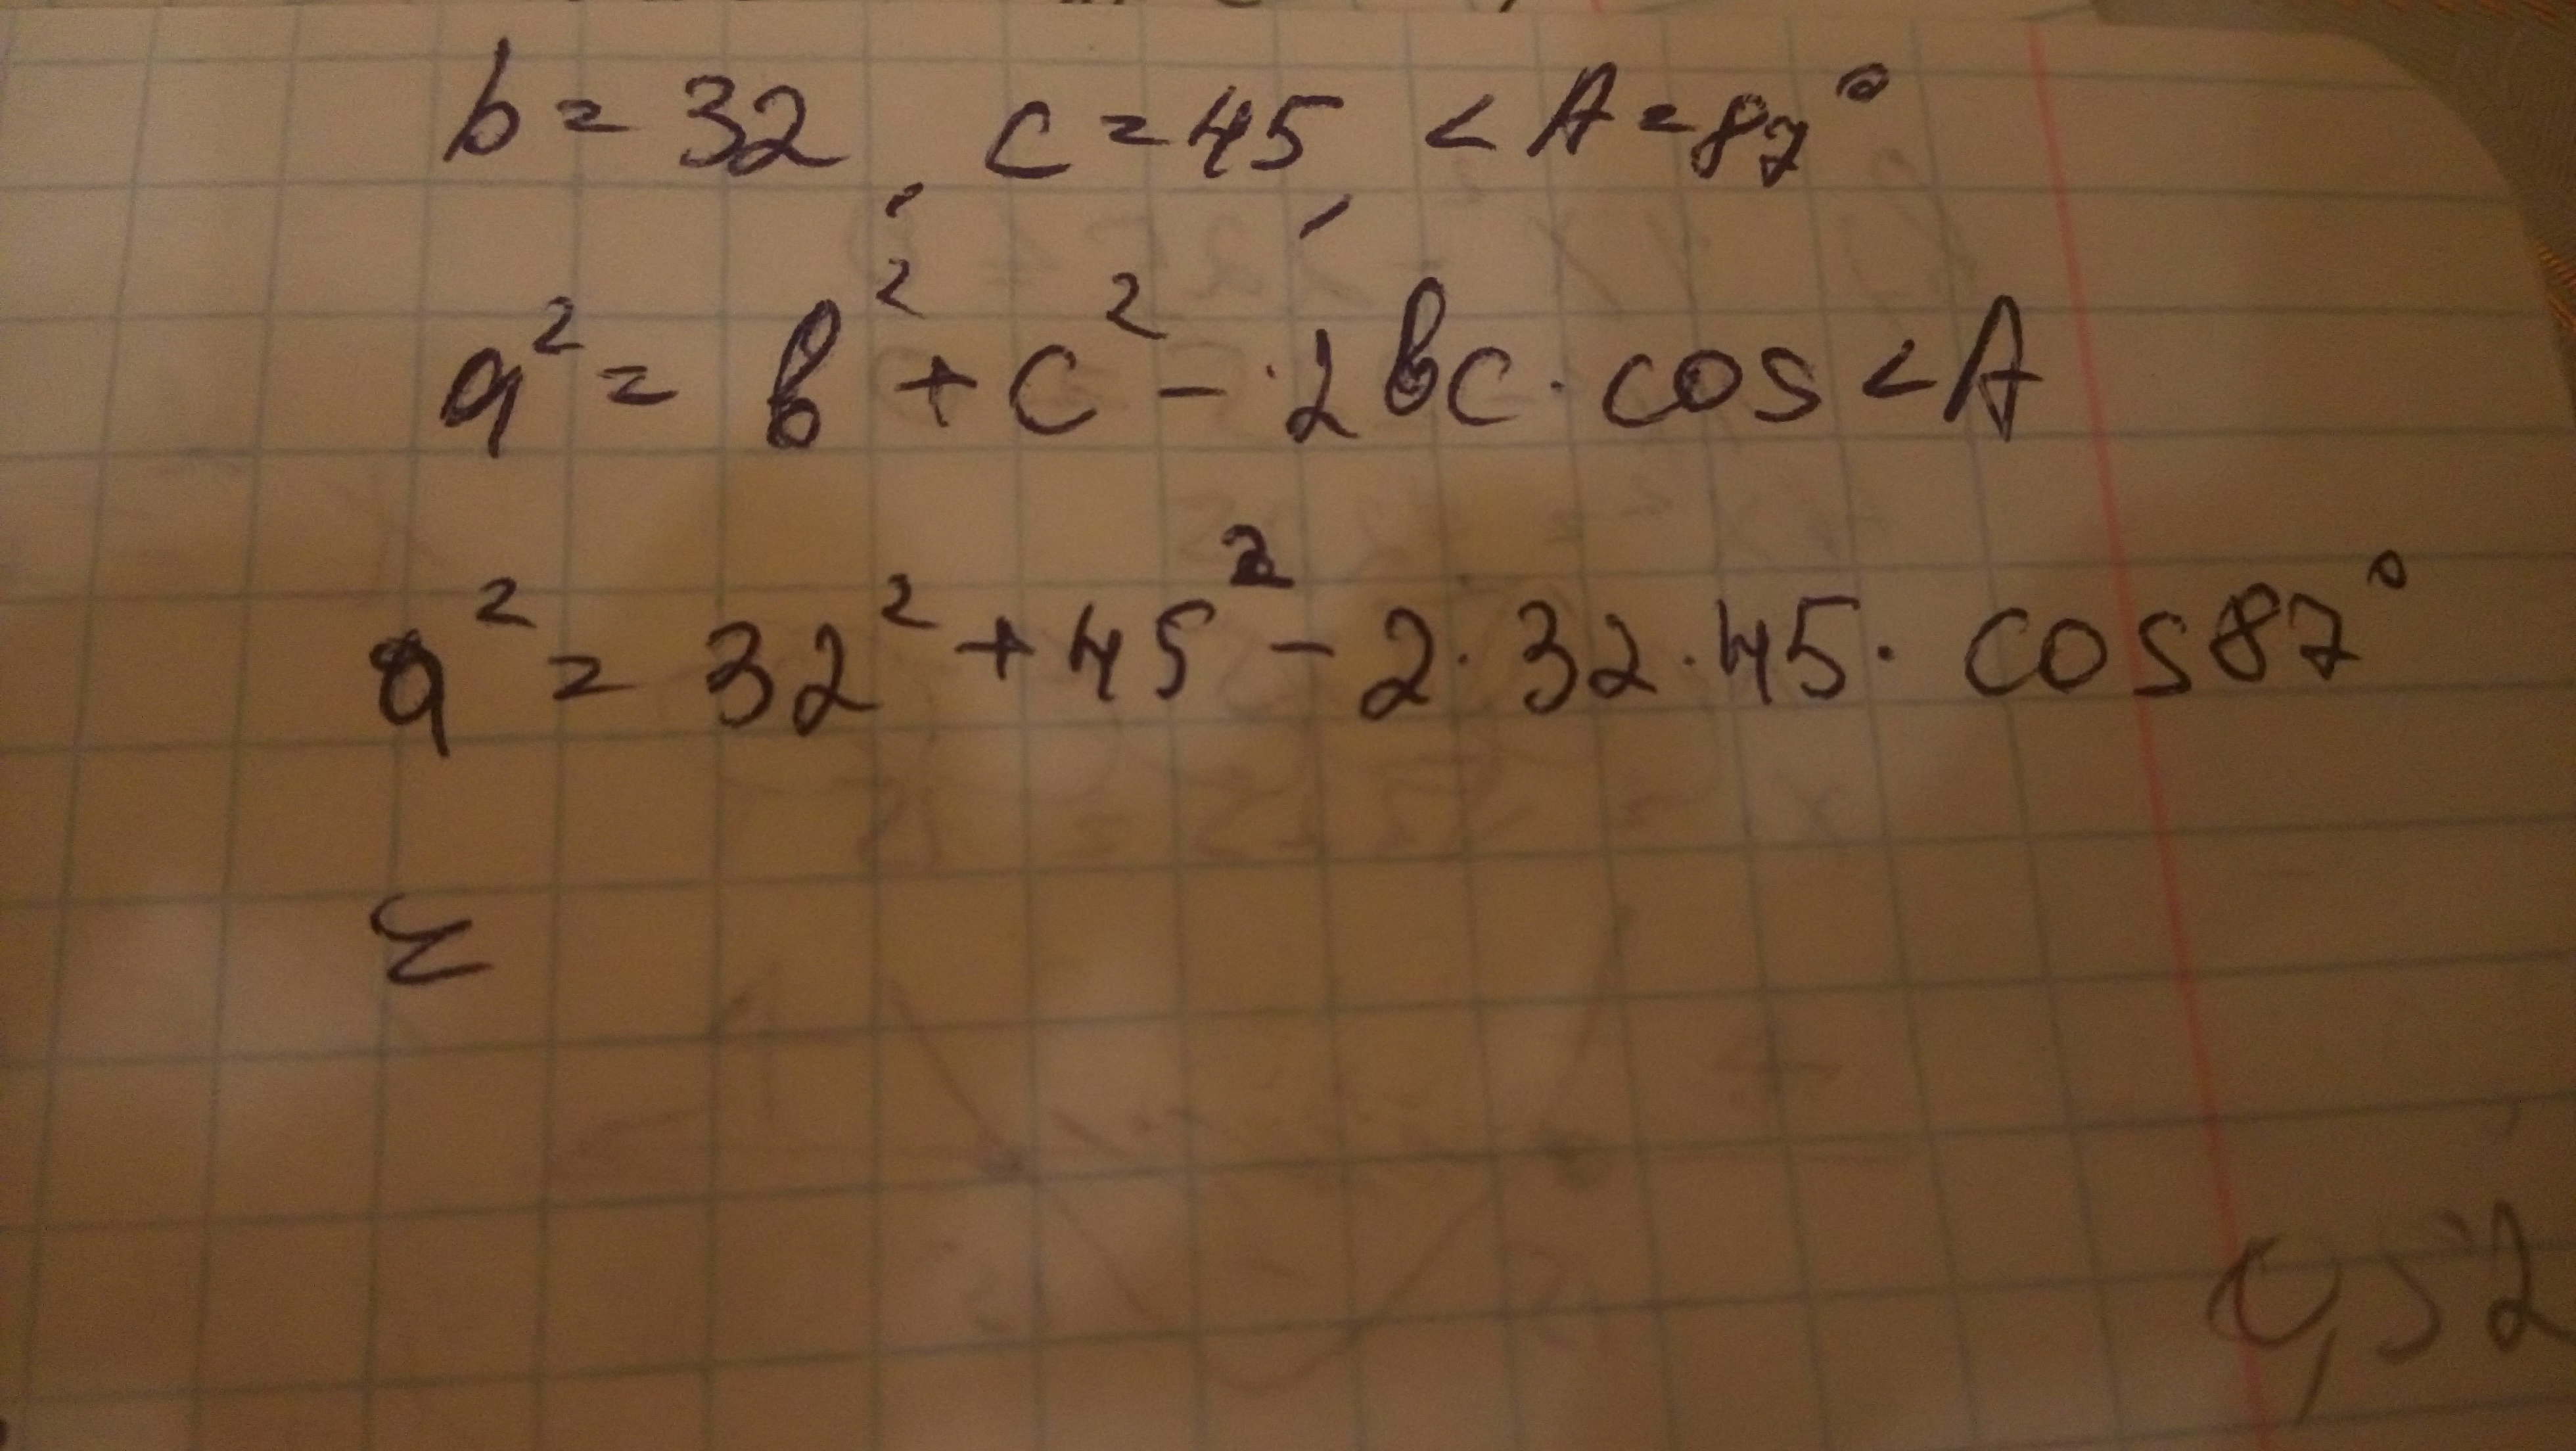 b = 32, c = 45, < A = 87°
a² = b² + c² - 2bc · cos < A
a² = 32² + 45² - 2 · 32 · 45 · cos 87°